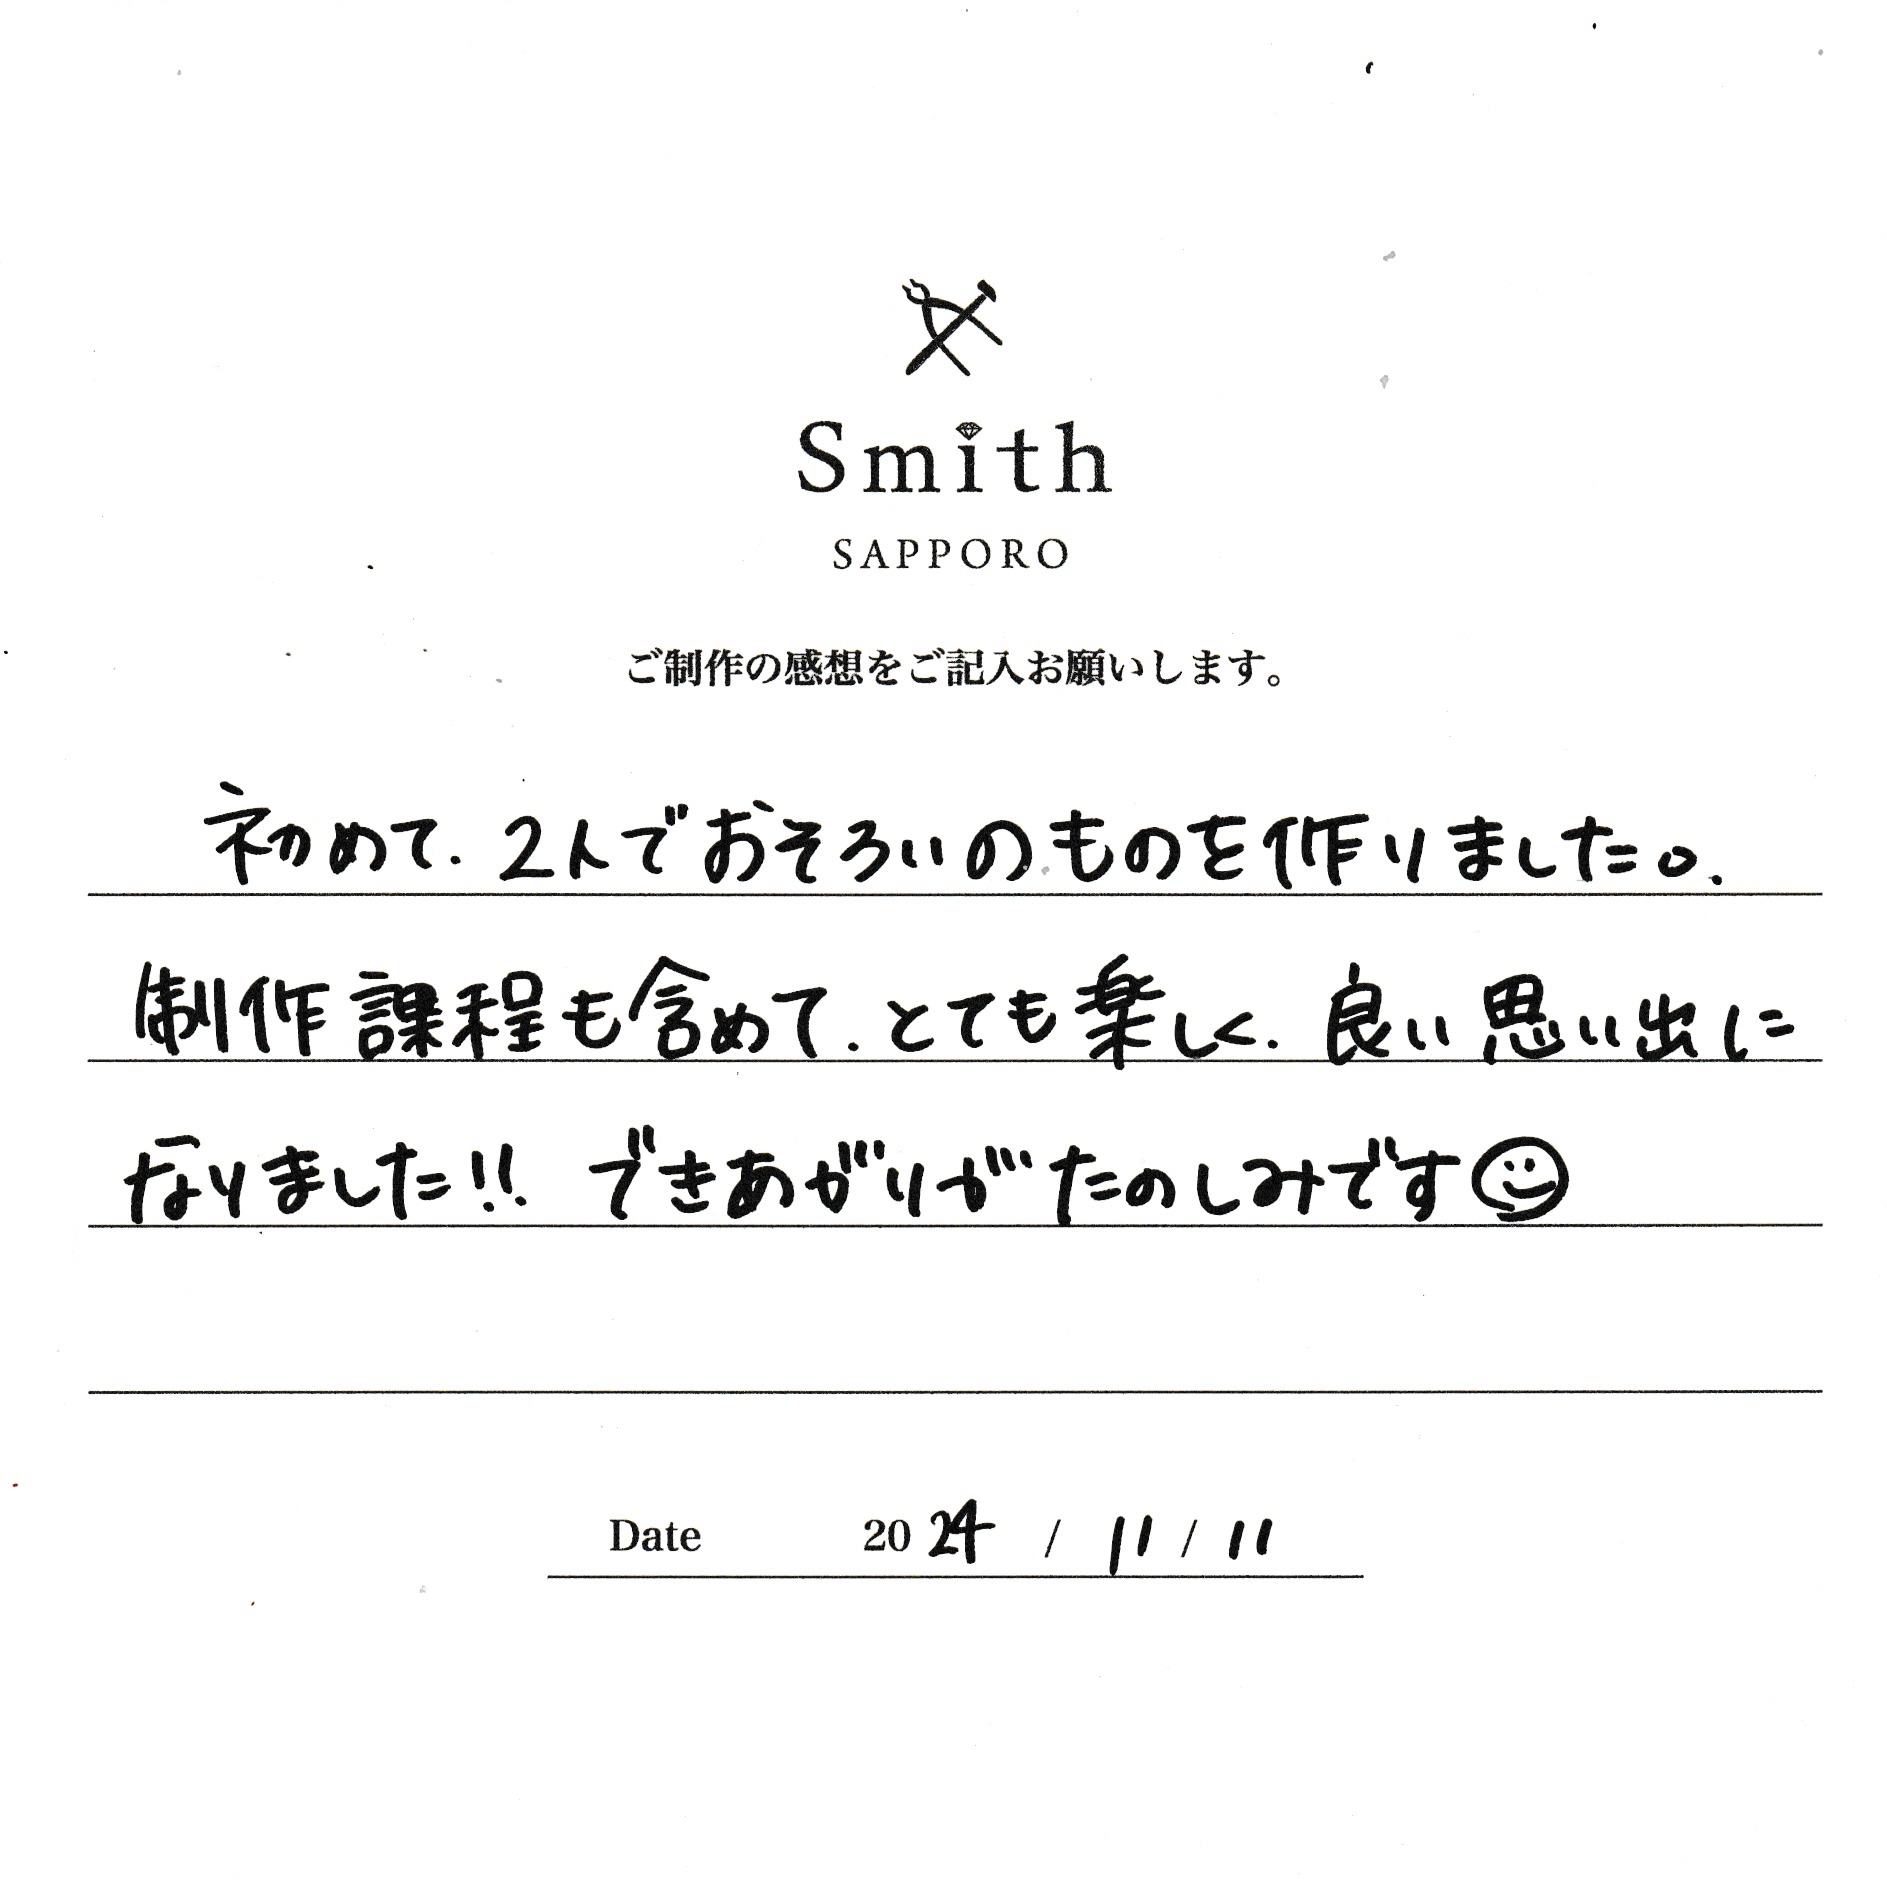 Smith
SAPPORO
ご制作の感想をご記入お願いします。
初めて、2人でおそろいのものを作りました。
制作課程も含めて、とても楽しく、良い思い出に
なりました!! できあがりがたのしみです☺
Date 2024 / 11 / 11